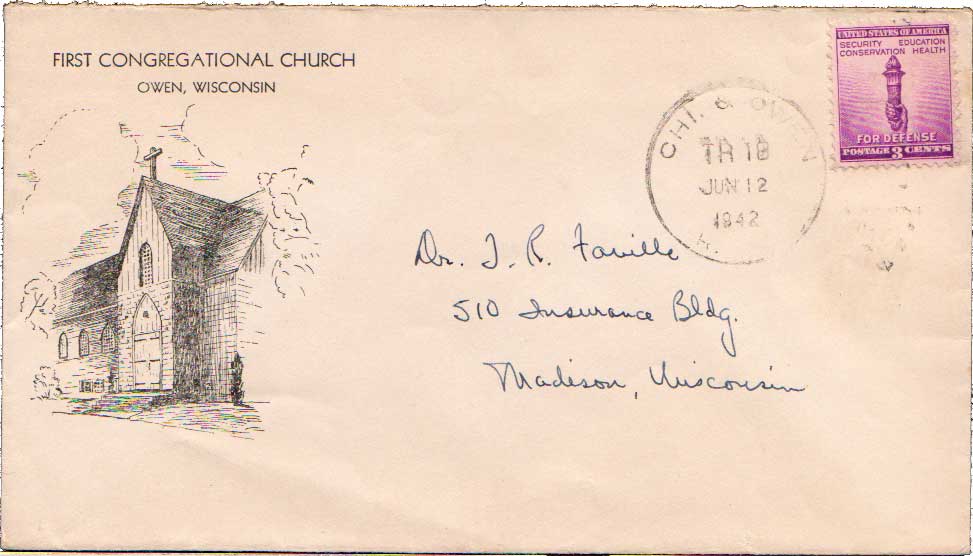 FIRST CONGREGATIONAL CHURCH
OWEN, WISCONSIN
UNITED STATES OF AMERICA
SECURITY EDUCATION
CONSERVATION HEALTH
FOR DEFENSE
POSTAGE 3 CENTS
CHI. & OWEN
TR 18
JUN 12
1942
R.
Dr. J. R. Faville
510 Insurance Bldg.
Madison, Wisconsin